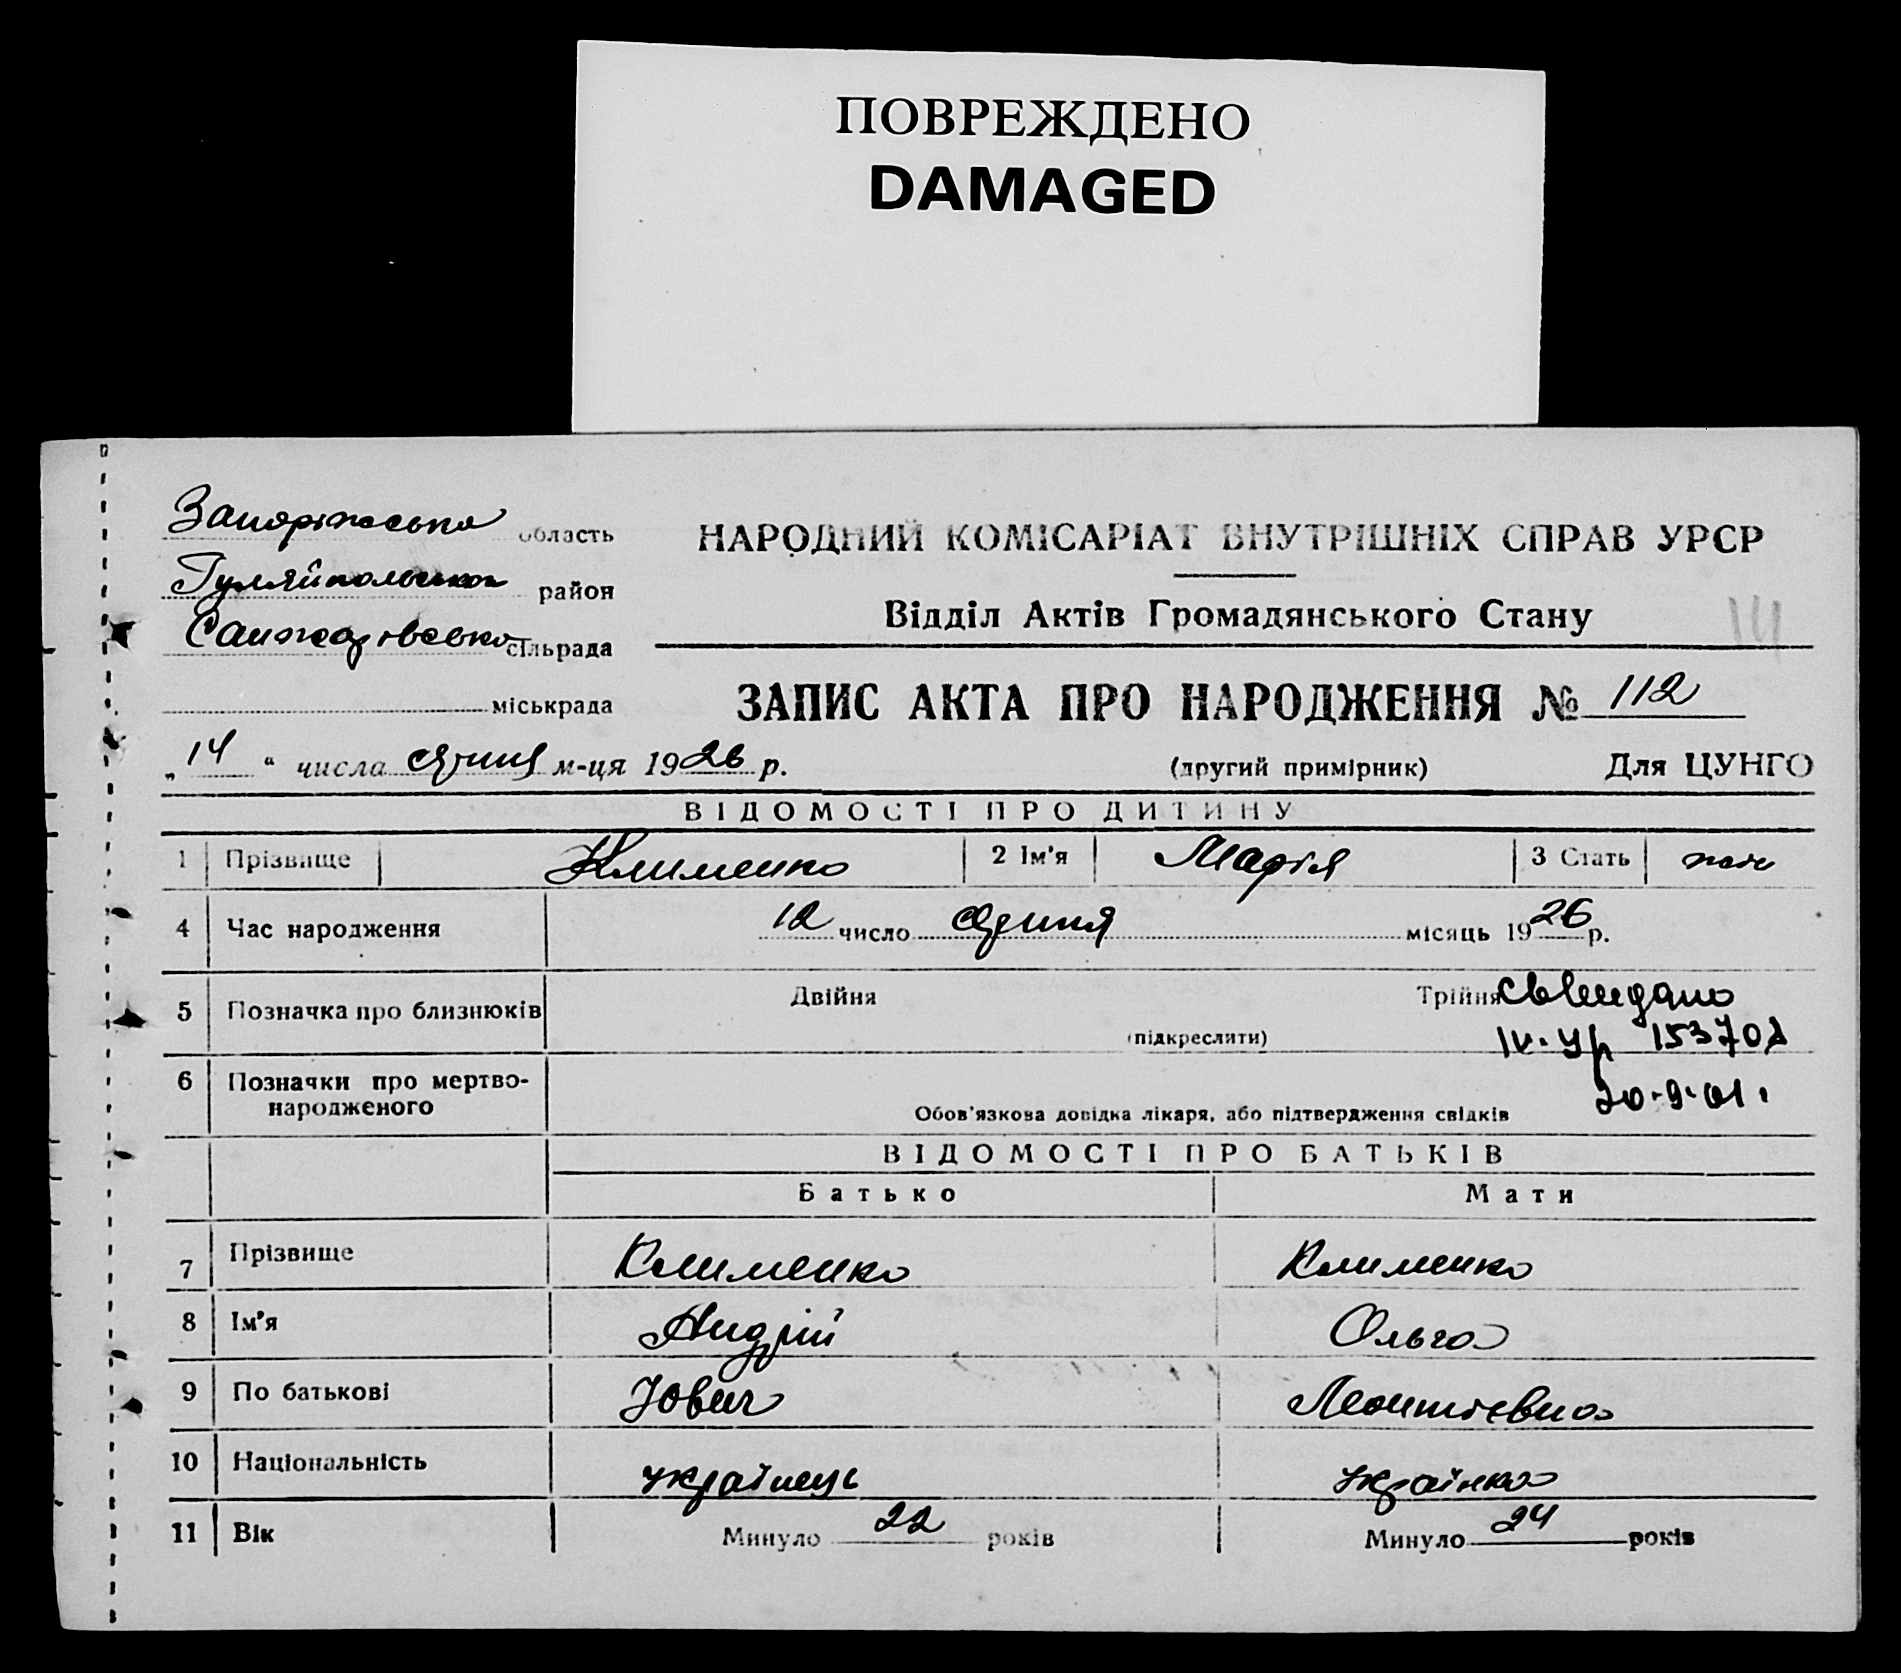 ПОВРЕЖДЕНО
DAMAGED
Запоріжська область
Гуляйпольський район
Санжарівська сільрада
міськрада
НАРОДНИЙ КОМІСАРІАТ ВНУТРІШНІХ СПРАВ УРСР
Відділ Актів Громадянського Стану
ЗАПИС АКТА ПРО НАРОДЖЕННЯ № 112
„14“ числа серпня м-ця 1926 р.
(другий примірник) Для ЦУНГО
ВІДОМОСТІ ПРО ДИТИНУ
1 Прізвище Клименко 2 Ім'я Марія 3 Стать жін
4 Час народження 12 число серпня місяць 1926 р.
5 Позначка про близнюків Двійня Трійня
(підкреслити)
IV-УР 153702
20.9.01г
6 Позначки про мертво-
народженого
Обов'язкова довідка лікаря, або підтвердження свідків
ВІДОМОСТІ ПРО БАТЬКІВ
Батько Мати
7 Прізвище Клименко Клименко
8 Ім'я Андрій Ольга
9 По батькові Йович Леонтієвна
10 Національність українець українка
11 Вік Минуло 22 років Минуло 24 років